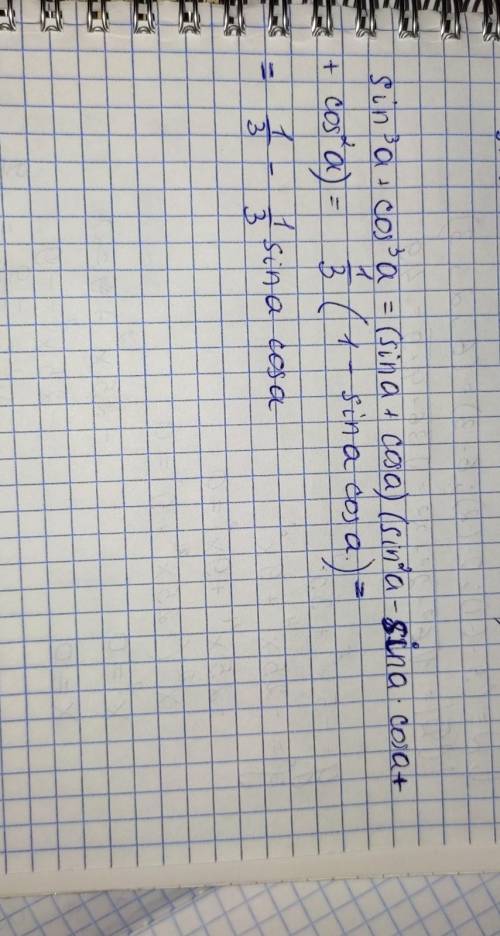 sin³a + cos³a = (sina + cosa) (sin²a - sina · cosa +
+ cos²a) = 1/3 (1 - sina cosa) =
= 1/3 - 1/3 sina cosa